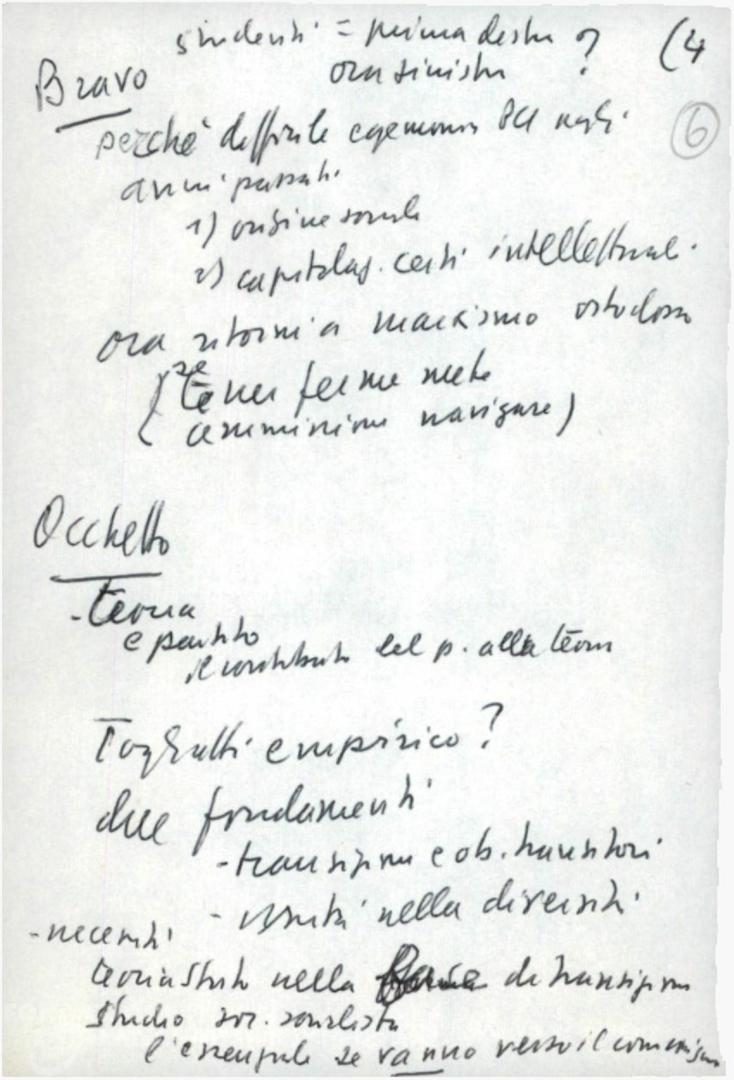 studenti = prima destra ?
ora sinistra
(4
Bravo
6
perché difficile egemonia PCI negli
anni passati
1) origine sociale
2) capitolaz. certi intellettuali
ora ritorni a marxismo ortodosso
(se tener ferme mete
navigare)
Occhetto
- teoria
e partito
il contributo del p. alla teoria
Togliatti empirico?
due fondamenti
- transizione e ob. transitori
- unità nella diversità
- necessità
teoria Stato nella fase di transizione
studio soc. socialista
l'essenziale se vanno verso il comunismo